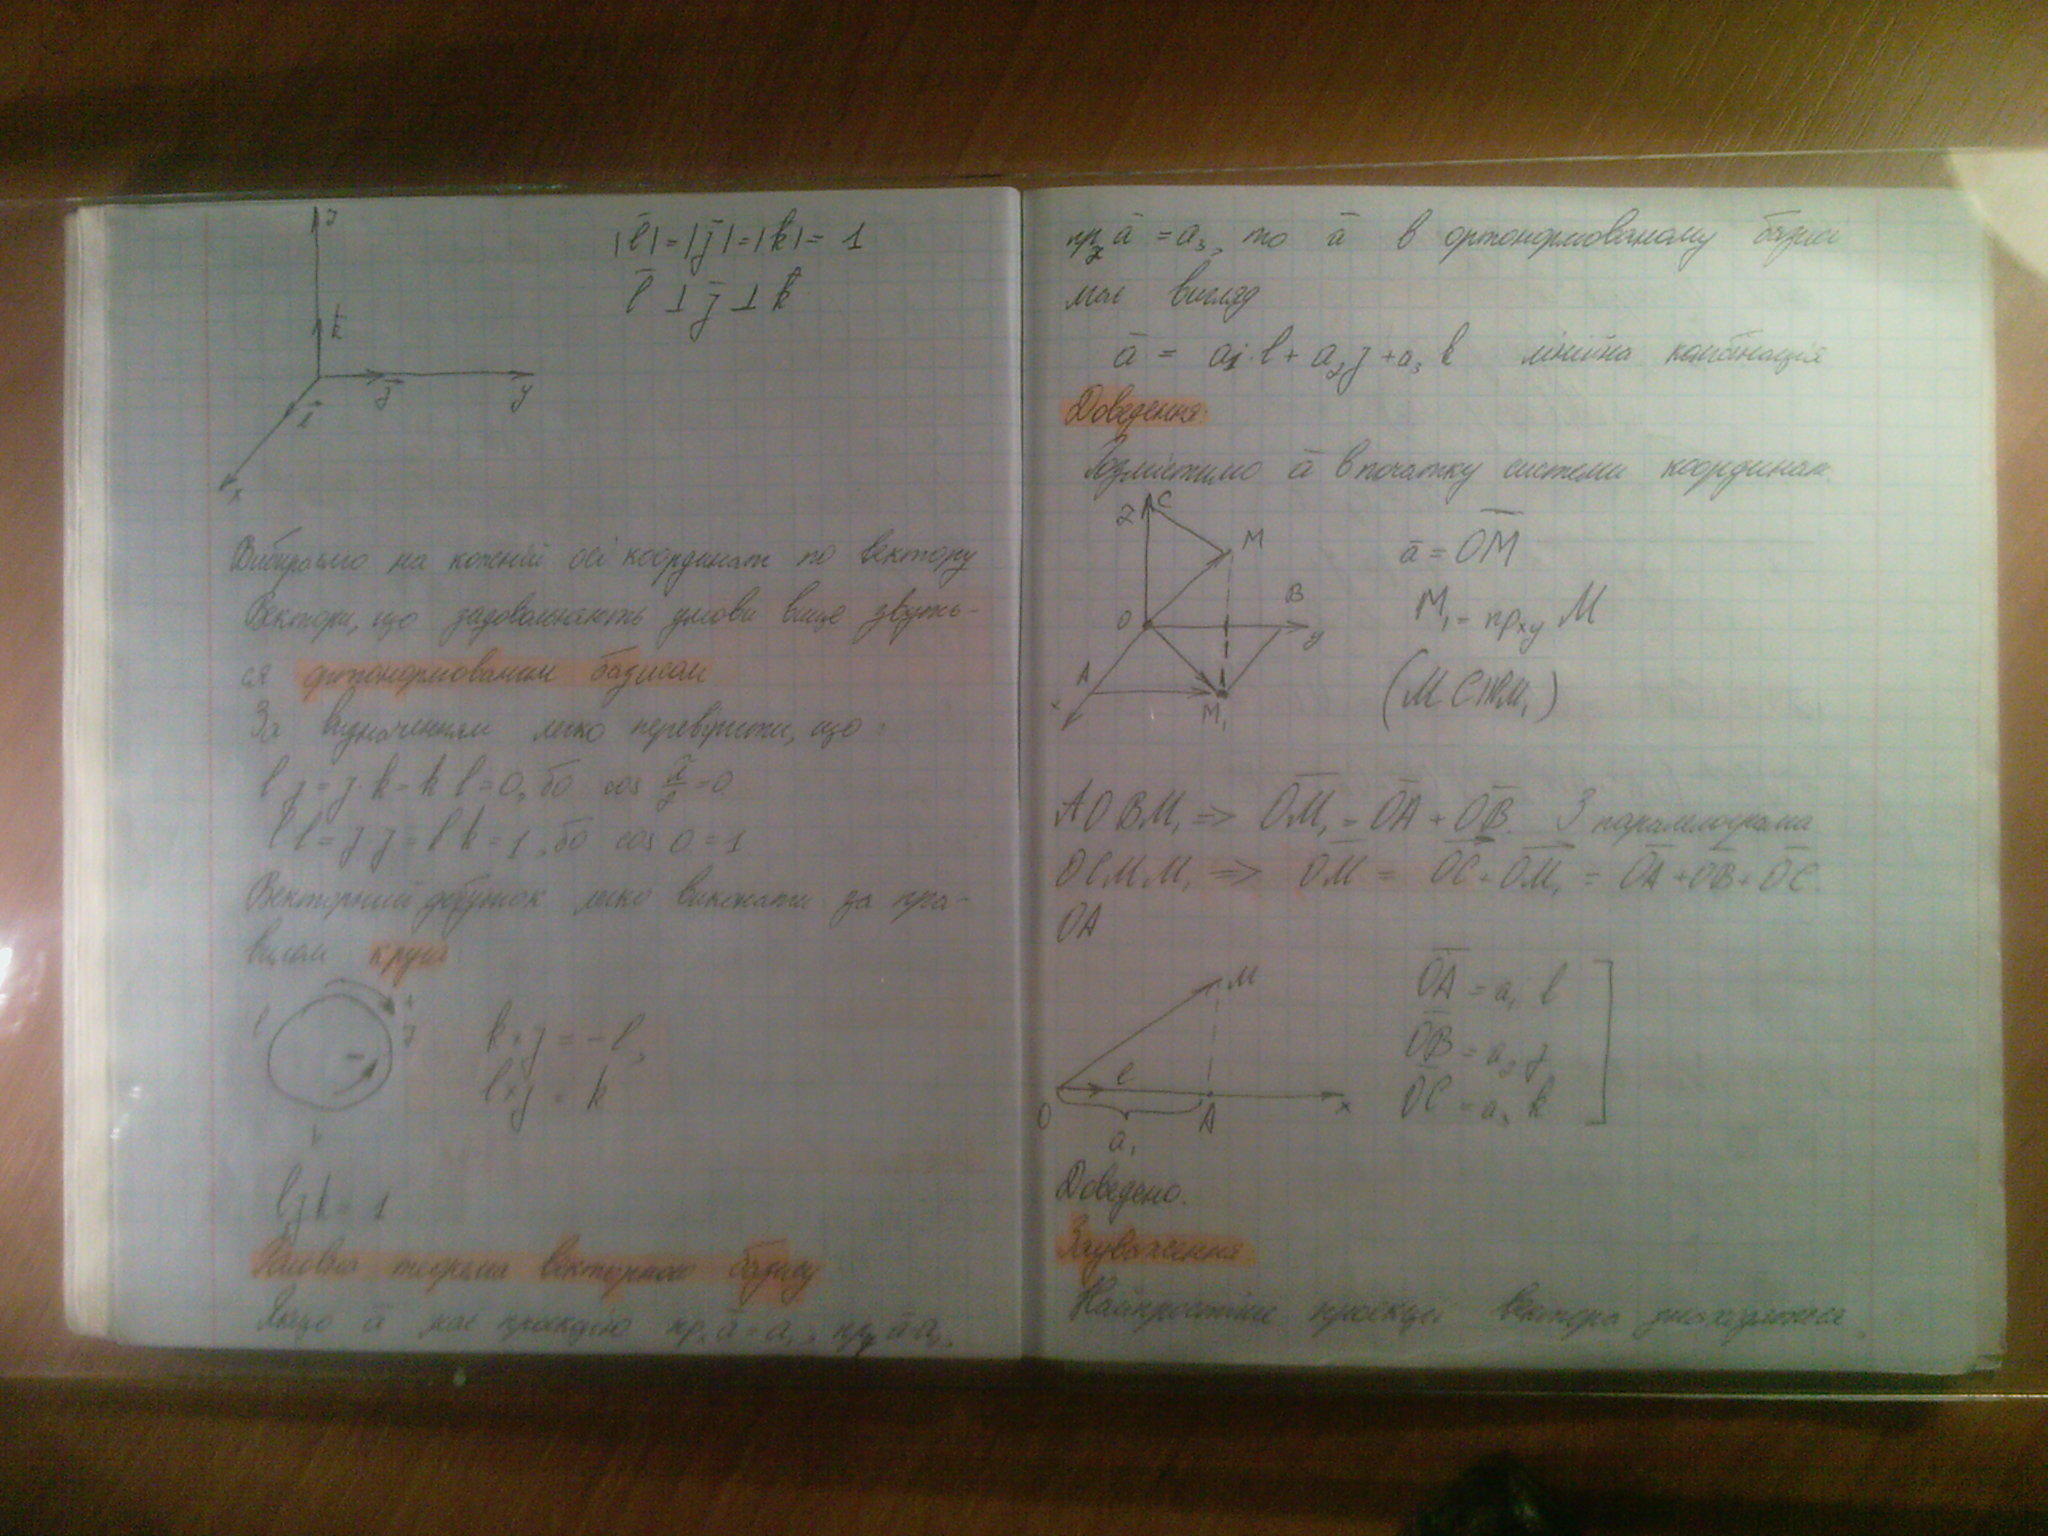 z
|ī| = |j̄| = |k̄| = 1
ī ⊥ j̄ ⊥ k̄
k̄
j̄
y
ī
x
Вибираємо на кожній осі координат по вектору
Вектори, що задовольняють умови вище звуть-
ся ортонормованим базисом
За визначенням легко перевірити, що:
i j = j · k = k i = 0, бо cos π/2 = 0
i i = j j = k k = 1, бо cos 0 = 1
Векторний добуток легко виконати за пра-
вилом круга
i
+
j
−
k × j = −i,
i × j = k
i j k = 1
Головна теорема векторного базису
Якщо ā має проекцію прₓ ā = a₁, пр_y ā = a₂,
пр_z ā = a₃, то ā в ортонормованому базисі
має вигляд
ā = a₁ · i + a₂ j + a₃ k лінійна комбінація
Доведення:
Розмістимо ā в початку системи координат.
z C
M
O
B
y
A
x
M₁
ā = OM
M₁ = пр_xy M
(MC || OM₁)
AOBM₁ => OM₁ = OA + OB. З паралелограма
OCMM₁ => OM = OC + OM₁ = OA + OB + OC.
OA
M
i
O
A
x
a₁
OA = a₁ i
OB = a₂ j
OC = a₃ k
Доведено.
Зауваження:
Найпростіше проекції вектора знаходяться